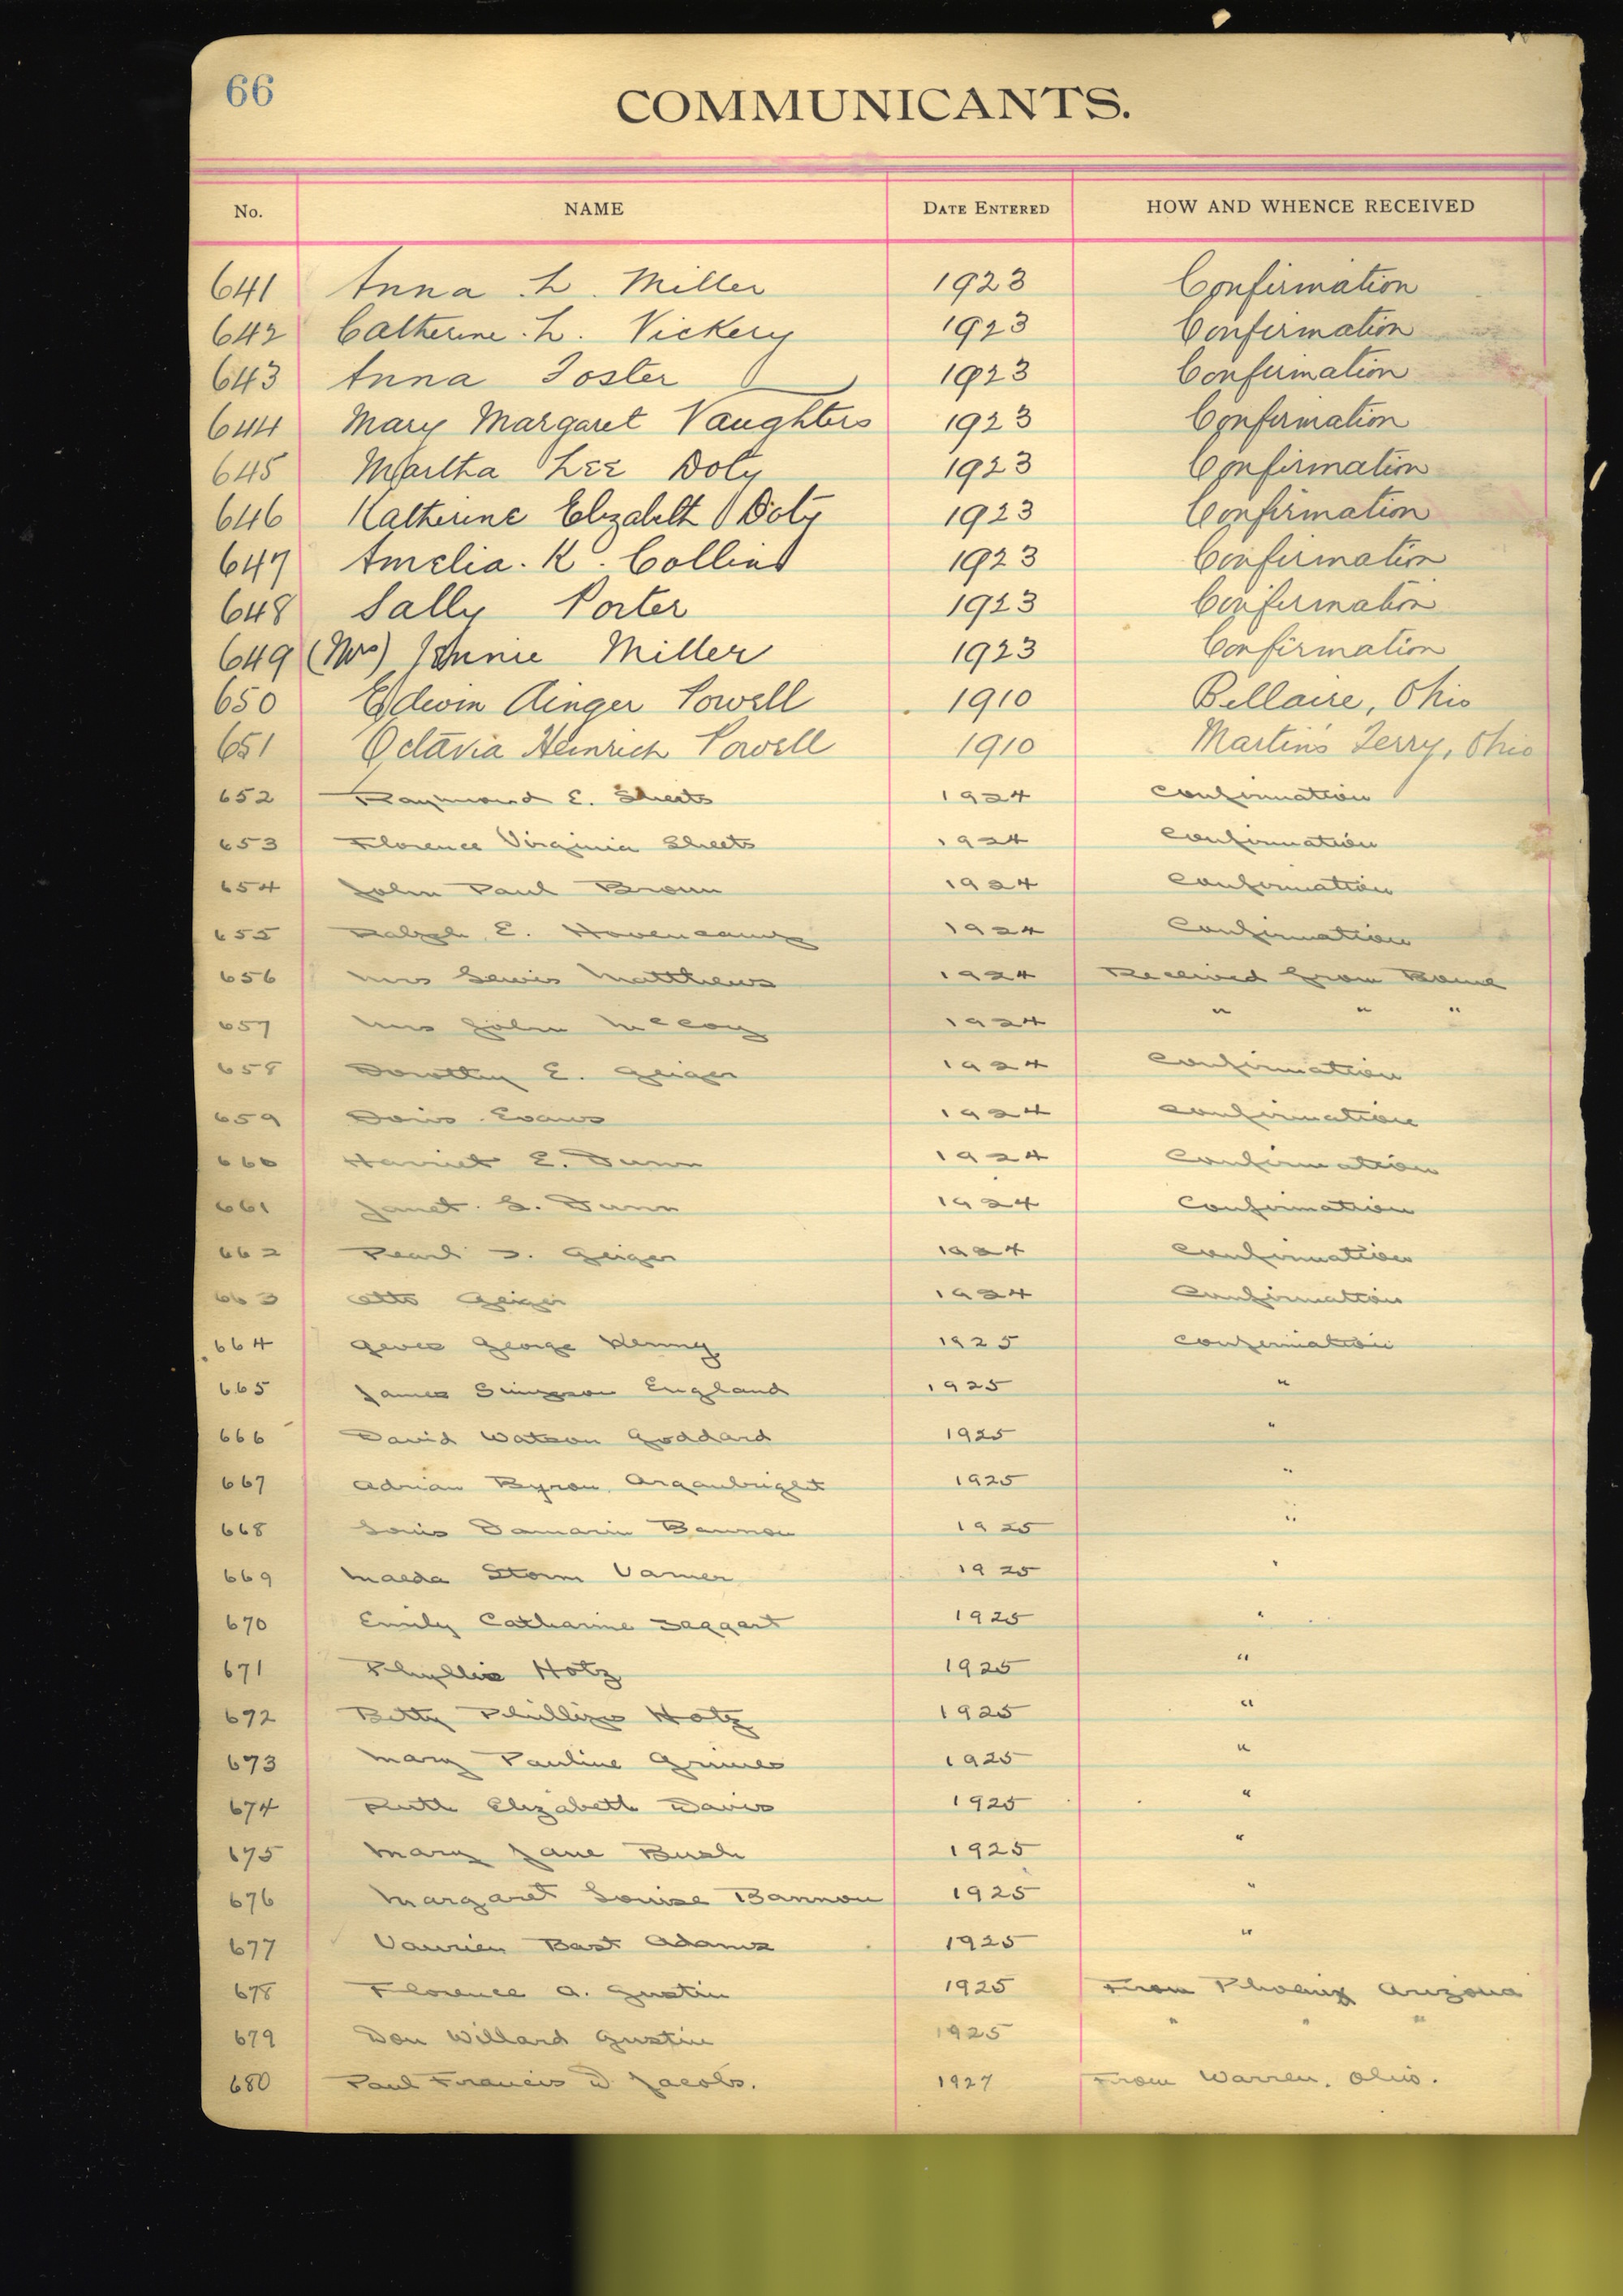 66
COMMUNICANTS.
No. NAME DATE ENTERED HOW AND WHENCE RECEIVED
641 Anna L. Miller 1923 Confirmation
642 Catherine L. Vickery 1923 Confirmation
643 Anna Foster 1923 Confirmation
644 Mary Margaret Vaughters 1923 Confirmation
645 Martha Lee Doty 1923 Confirmation
646 Katherine Elizabeth Doty 1923 Confirmation
647 Amelia K. Collins 1923 Confirmation
648 Sally Porter 1923 Confirmation
649 (Mrs) Minnie Miller 1923 Confirmation
650 Edwin Ainger Powell 1910 Bellaire, Ohio
651 Octavia Heinrich Powell 1910 Martins Ferry, Ohio
652 Raymond E. Sheets 1924 Confirmation
653 Florence Virginia Sheets 1924 Confirmation
654 John Paul Brown 1924 Confirmation
655 Ralph E. Hovencamp 1924 Confirmation
656 Mrs Lewis Matthews 1924 Received from Rome
657 Mrs John McCoy 1924 " " "
658 Dorothy E. Geiger 1924 Confirmation
659 Doris Evans 1924 Confirmation
660 Harriet E. Dunn 1924 Confirmation
661 Janet S. Dunn 1924 Confirmation
662 Pearl D. Geiger 1924 Confirmation
663 Otto Geiger 1924 Confirmation
664 George 1925 Confirmation
665 James Simpson England 1925 "
666 David Watson Goddard 1925 "
667 Adrian Byron Arganbright 1925 "
668 Louis Damarin Bannon 1925 "
669 Maeda Storm Varner 1925 "
670 Emily Catharine Taggart 1925 "
671 Phyllis Hotz 1925 "
672 Betty Phillips Hotz 1925 "
673 Mary Pauline Grimes 1925 "
674 Ruth Elizabeth Davis 1925 "
675 Mary Jane Bush 1925 "
676 Margaret Louise Bannon 1925 "
677 Bast Adams 1925 "
678 Florence A. Gustin 1925 From Phoenix Arizona
679 Don Willard Gustin 1925 " " "
680 Paul Francis D Jacobs. 1927 From Warren, Ohio.